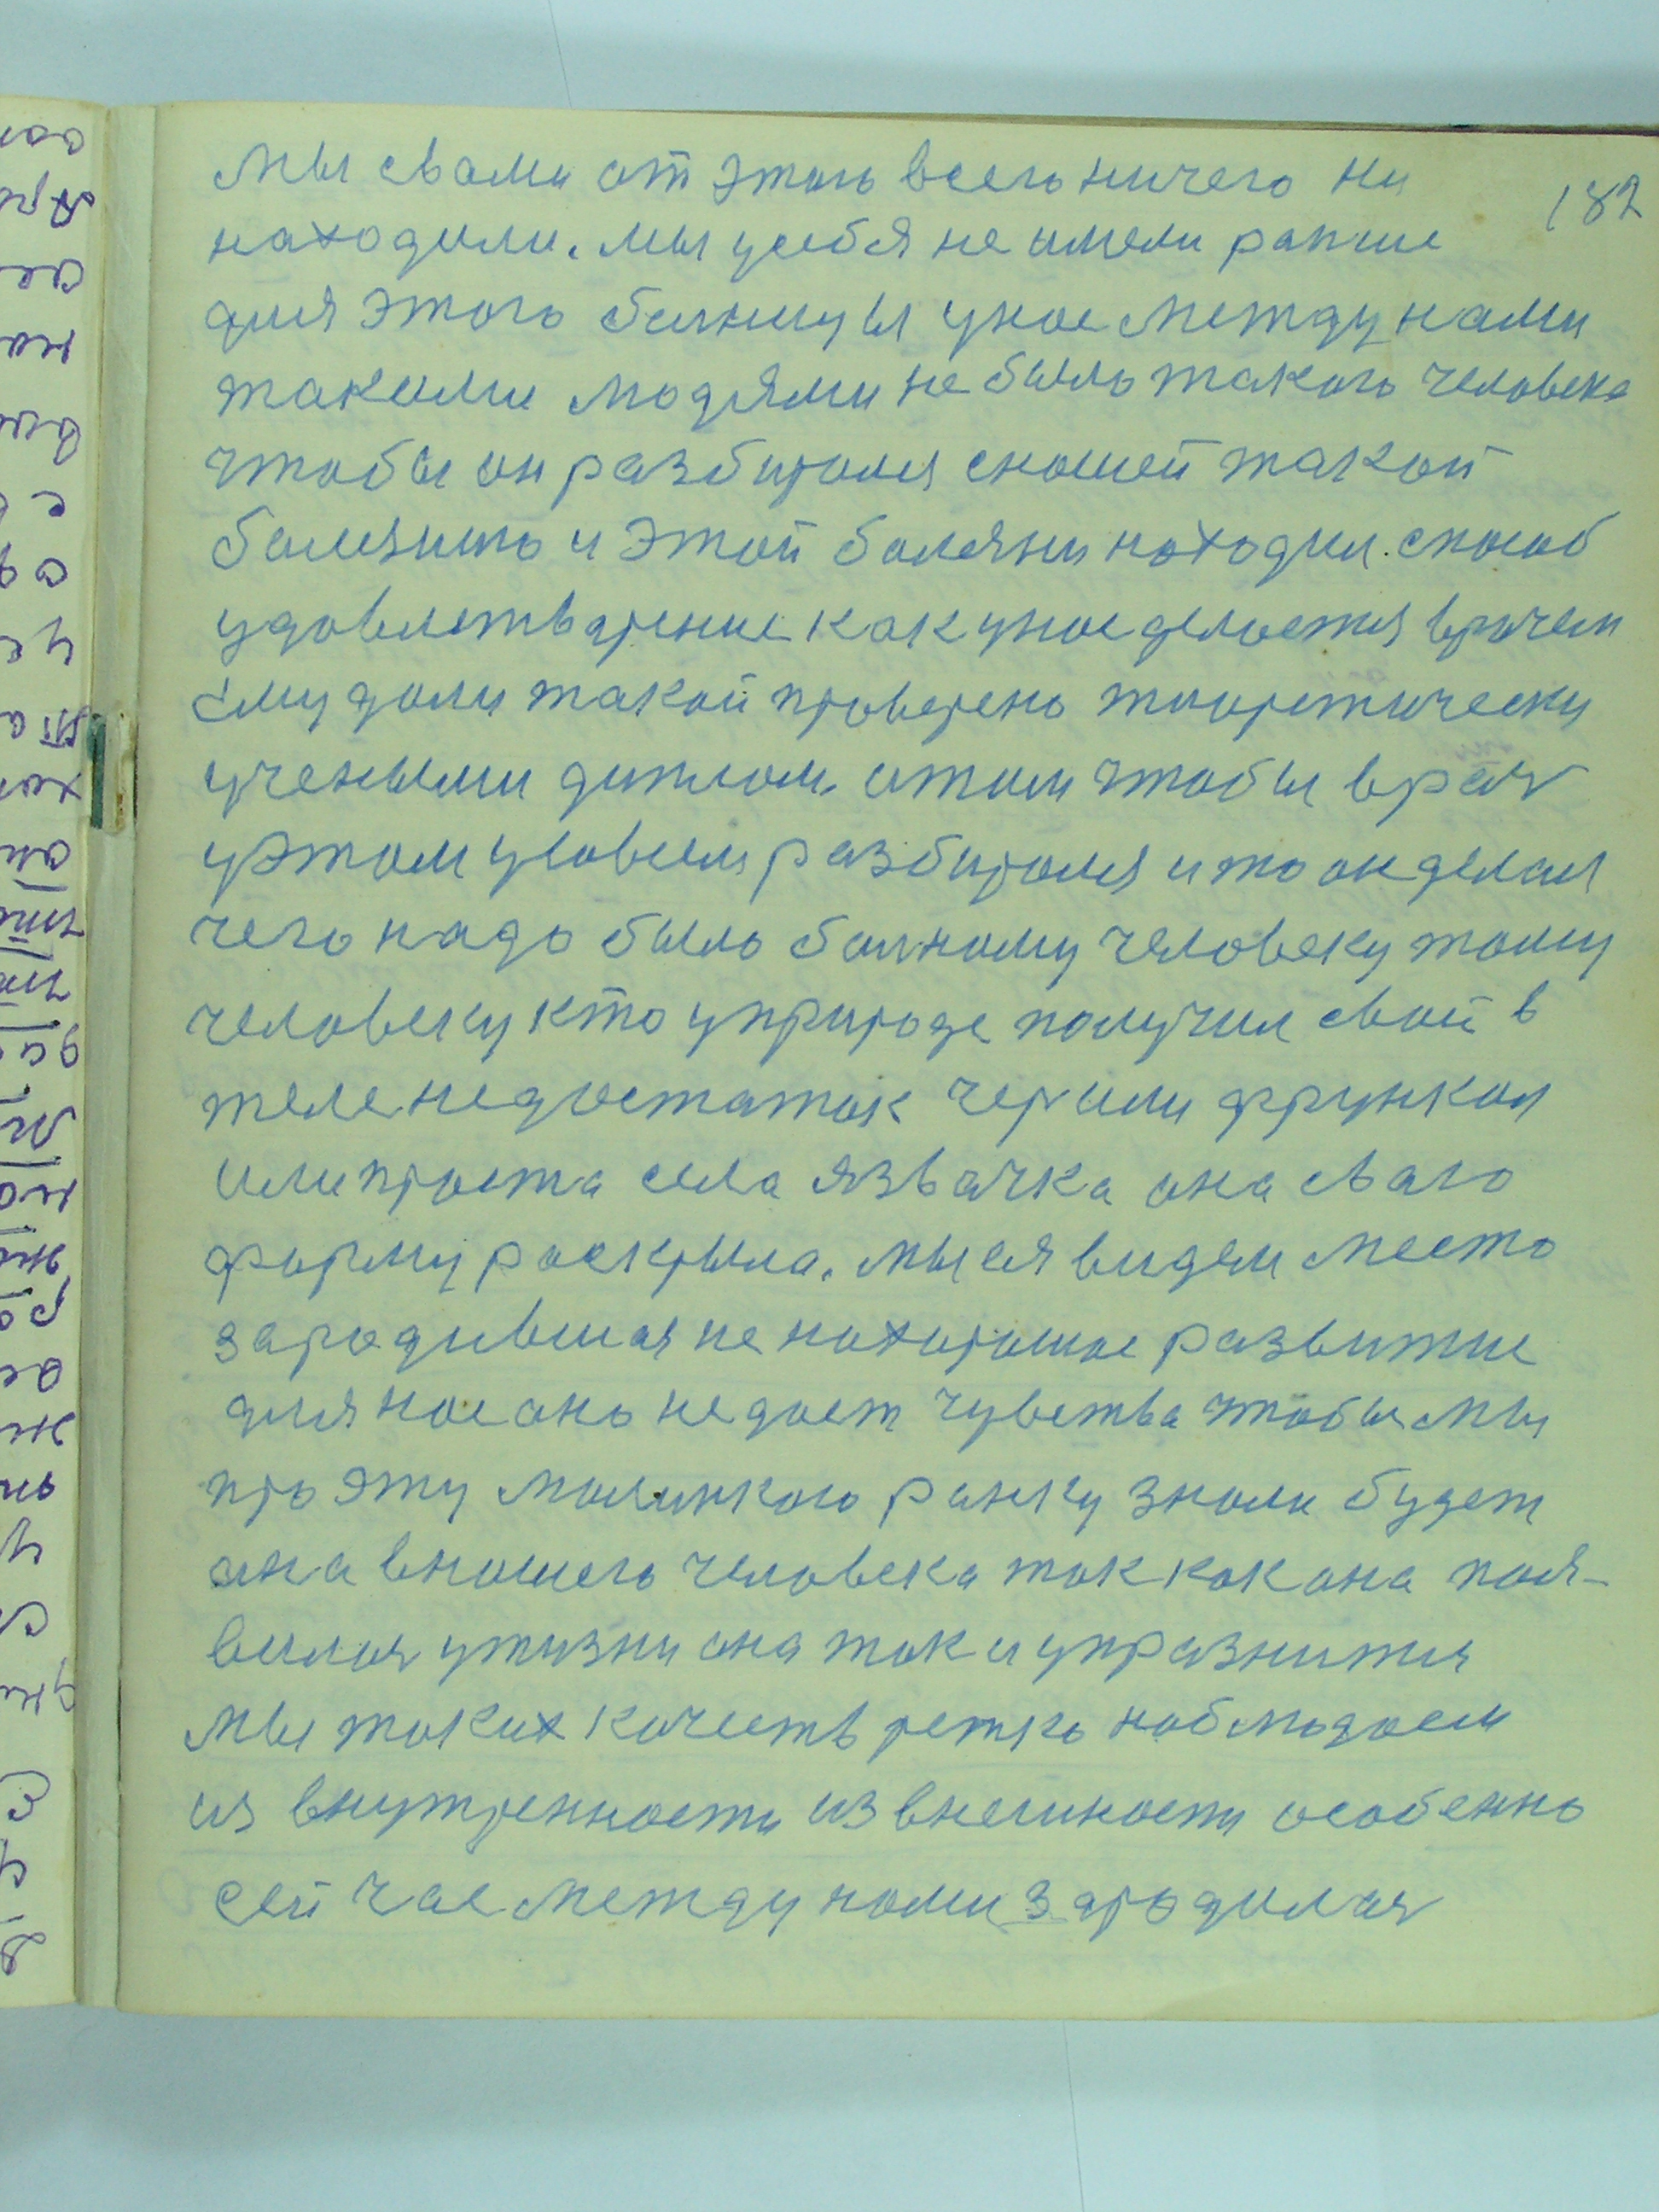 182
мы свами от этого всего ничего ни
находили. мы усебя не имели ранше
для этого болницы унас между нами
такими людями не было такого человека
чтобы он разбирался снашей такой
болезнию и этой болезни находил способ
удовлетварение как унас делается врачем
ему дали такой проверено тиоретически
учеными диплом. итом чтобы врач
уэтом усовсем разбирался и то он делал
чего надо было болному человеку тому
человеку кто уприроде получил свой в
теле недостаток чери или фрункол
или проста села язвачка она сваго
форму раскрыла. мы ея видем место
зародившая не нахорошое развитие
для нас оно не дает чувства чтобы мы
про эту малинкого ранку знали будет
она внашего человека так как она поя-
вилая ужизни она так и упразнится
мы таких качеств ретко наблюдаем
из внутренности извнешности особенно
сей час между нами зародилая